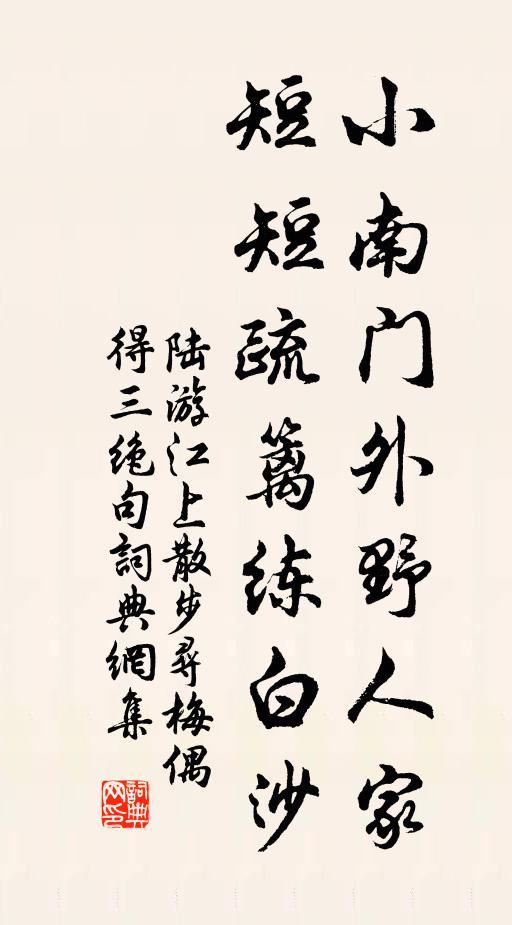 小南门外野人家
短短疏篱练白沙
陆游江上散步寻梅偶
得三绝句詞典網集
詞典网印